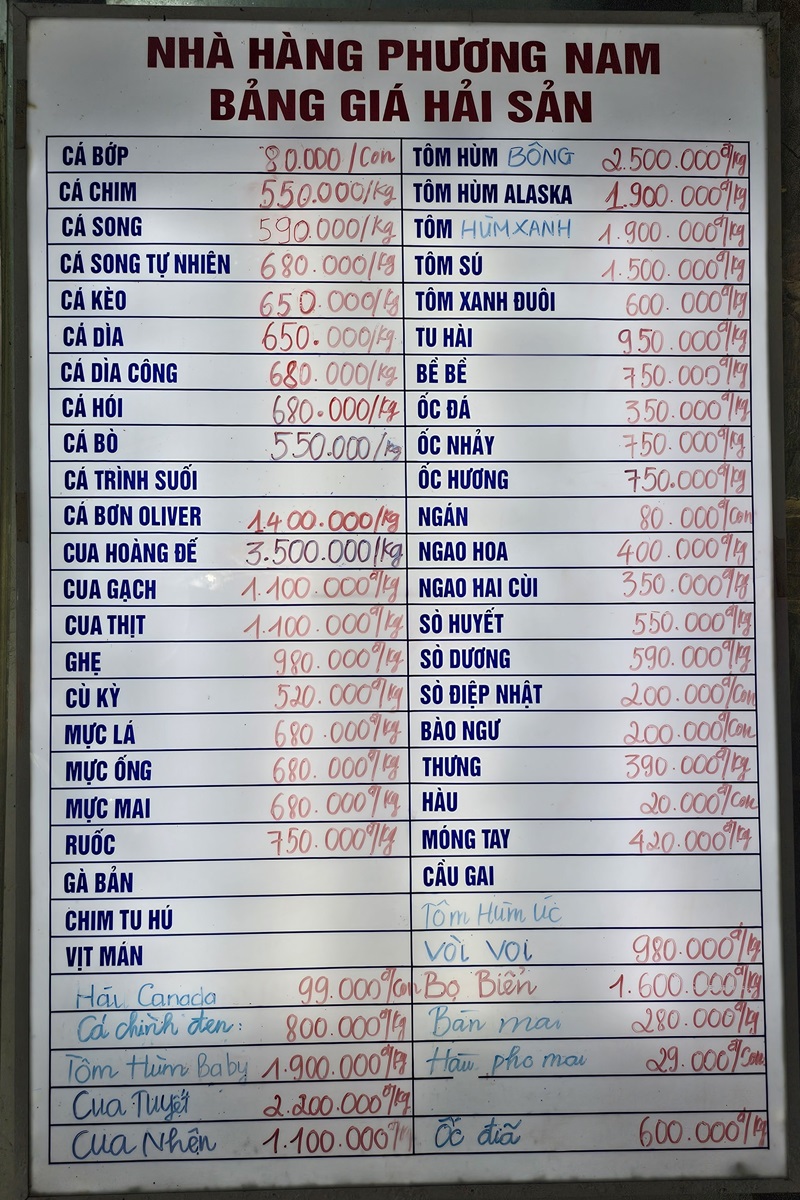 NHÀ HÀNG PHƯƠNG NAM
BẢNG GIÁ HẢI SẢN
CÁ BỚP 80.000/Con
CÁ CHIM 550.000/kg
CÁ SONG 590.000/kg
CÁ SONG TỰ NHIÊN 680.000/kg
CÁ KÈO 650.000/kg
CÁ DÌA 650.000/kg
CÁ DÌA CÔNG 680.000/kg
CÁ HÓI 680.000/kg
CÁ BÒ 550.000/kg
CÁ TRÌNH SUỐI
CÁ BƠN OLIVER 1.400.000/kg
CUA HOÀNG ĐẾ 3.500.000/kg
CUA GẠCH 1.100.000đ/kg
CUA THỊT 1.100.000đ/kg
GHẸ 980.000đ/kg
CÙ KỲ 520.000đ/kg
MỰC LÁ 680.000đ/kg
MỰC ỐNG 680.000đ/kg
MỰC MAI 680.000đ/kg
RUỐC 750.000đ/kg
GÀ BẢN
CHIM TU HÚ
VỊT MÁN
Hàu Canada 99.000đ/con
Cá chình đen: 800.000đ/kg
Tôm Hùm Baby 1.900.000đ/kg
Cua Tuyết 2.200.000đ/kg
Cua Nhện 1.100.000đ/
TÔM HÙM BÔNG 2.500.000đ/kg
TÔM HÙM ALASKA 1.900.000đ/kg
TÔM HÙM XANH 1.900.000đ/kg
TÔM SÚ 1.500.000đ/kg
TÔM XANH ĐUÔI 600.000đ/kg
TU HÀI 950.000đ/kg
BỀ BỀ 750.000đ/kg
ỐC ĐÁ 350.000đ/kg
ỐC NHẢY 750.000đ/kg
ỐC HƯƠNG 750.000đ/kg
NGÁN 80.000đ/Con
NGAO HOA 400.000đ/kg
NGAO HAI CÙI 350.000đ/kg
SÒ HUYẾT 550.000đ/kg
SÒ DƯƠNG 590.000đ/kg
SÒ ĐIỆP NHẬT 200.000đ/Con
BÀO NGƯ 200.000đ/Con
THƯNG 390.000đ/kg
HÀU 20.000đ/Con
MÓNG TAY 420.000đ/kg
CẦU GAI
Tôm Hùm Úc
Vòi Voi 980.000đ/kg
Bọ Biển 1.600.000đ/kg
Bàn mai 280.000đ/kg
Hàu pho mai 29.000đ/Con
Ốc đĩa 600.000đ/kg